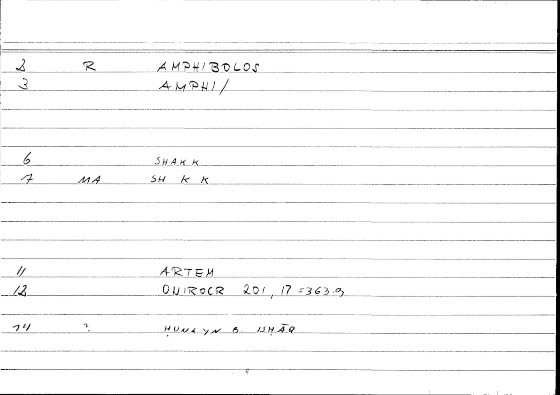 2 R AMPHIBOLOS
3 AMPHI/
6 SHAKK
7 MA SH K K
11 ARTEM
12 ONIROCR 201, 17 = 363.9
14 ? ḤUNAYN B. ISḤĀQ